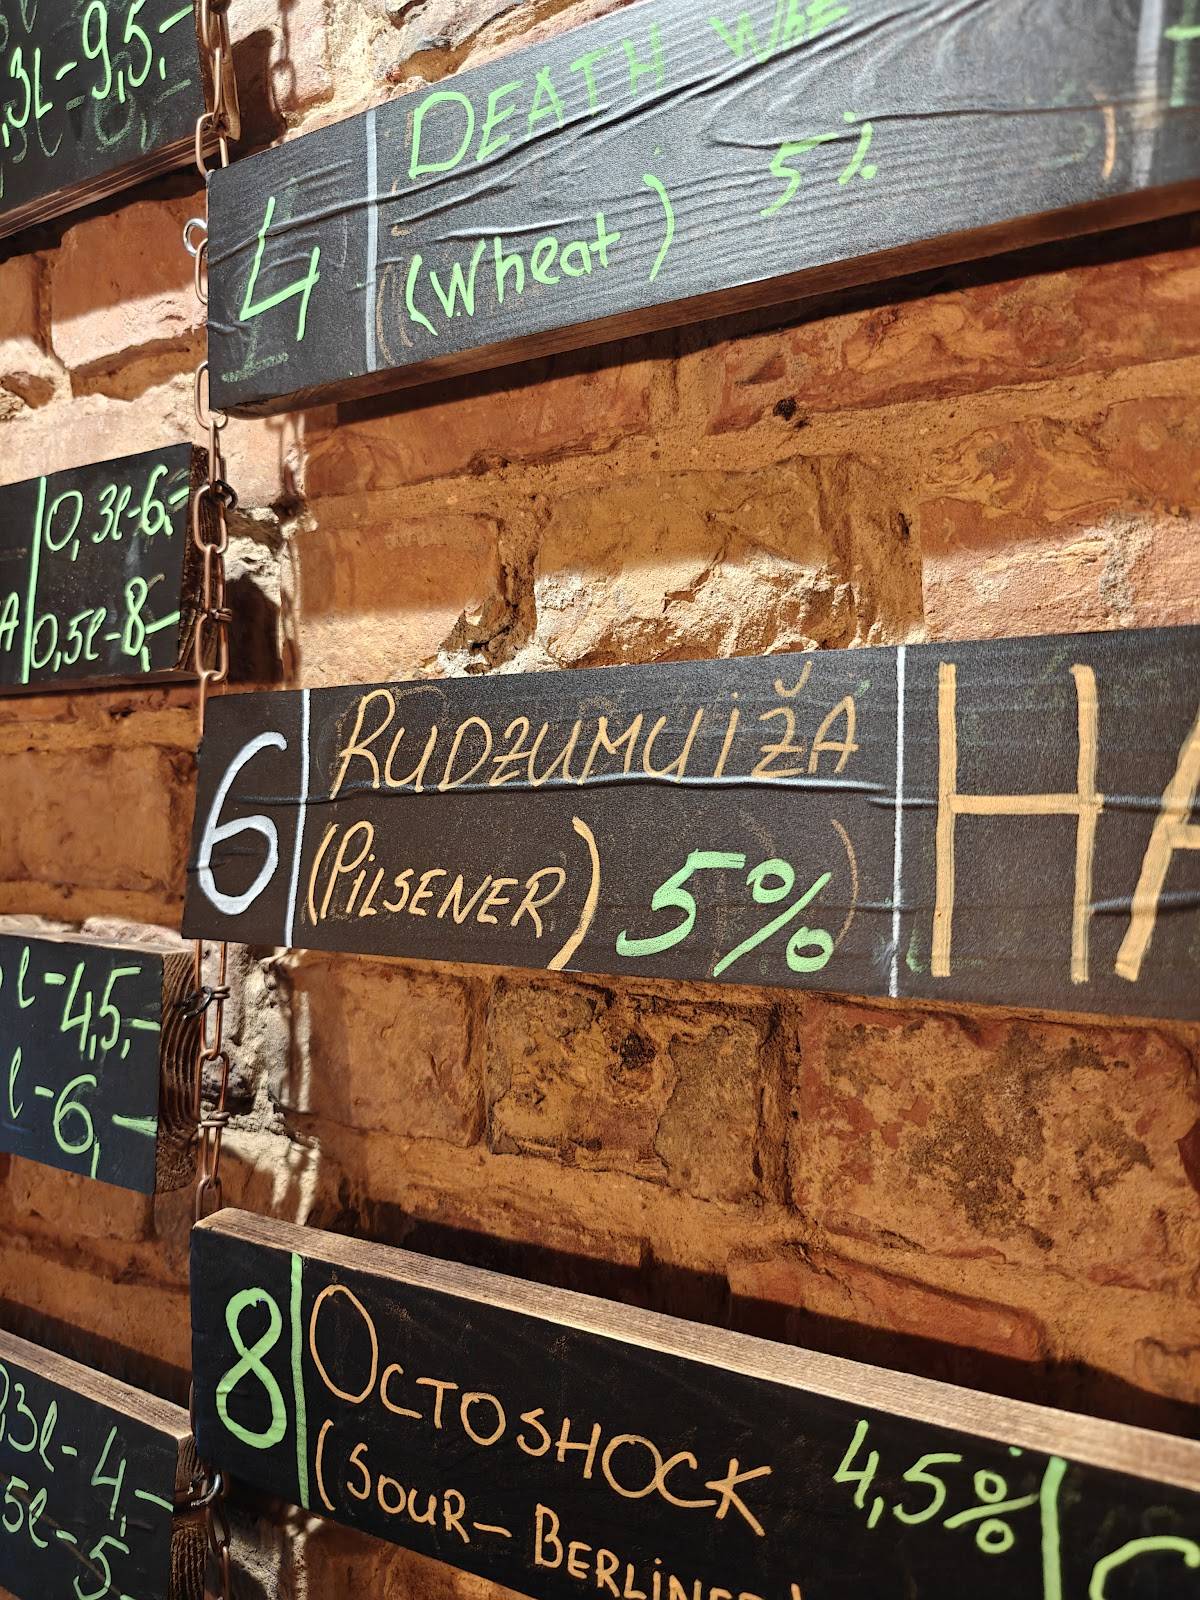 ,3l-9,5,-
4
DEATH
(Wheat) 5%
0,3l-6,-
A 0,5l-8,-
6
RUDZUMUIŽA
(PILSENER) 5%
HA
l-4,5,-
l-6,-
8
OCTOSHOCK 4,5%
(SOUR-BERLINER)
,3l-4,-
5l-5,-